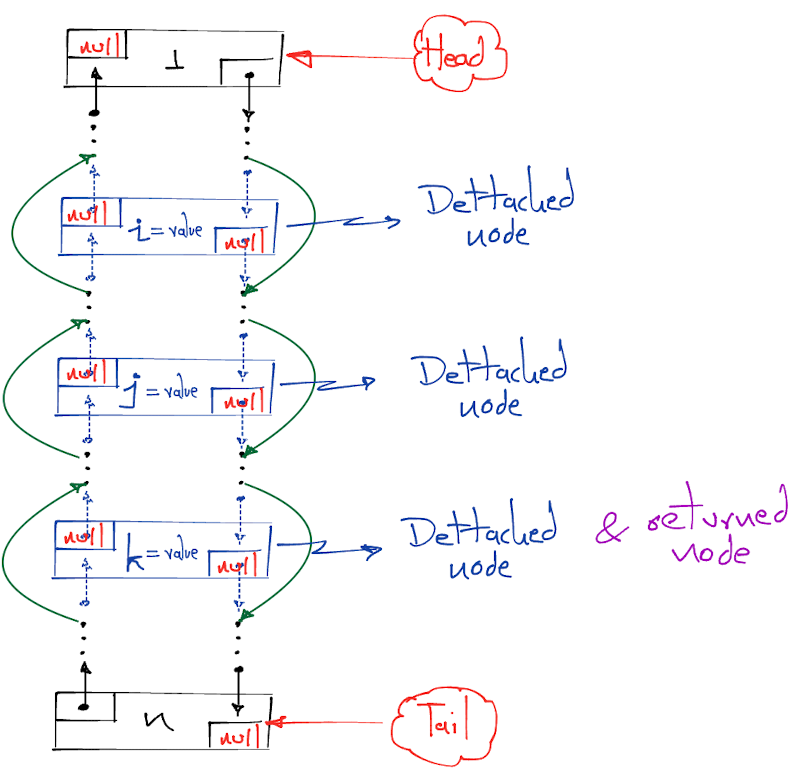 null
1
Head
null
i = value
null
Dettached
node
null
j = value
null
Dettached
node
null
k = value
null
Dettached
node
& returned
node
n
null
Tail